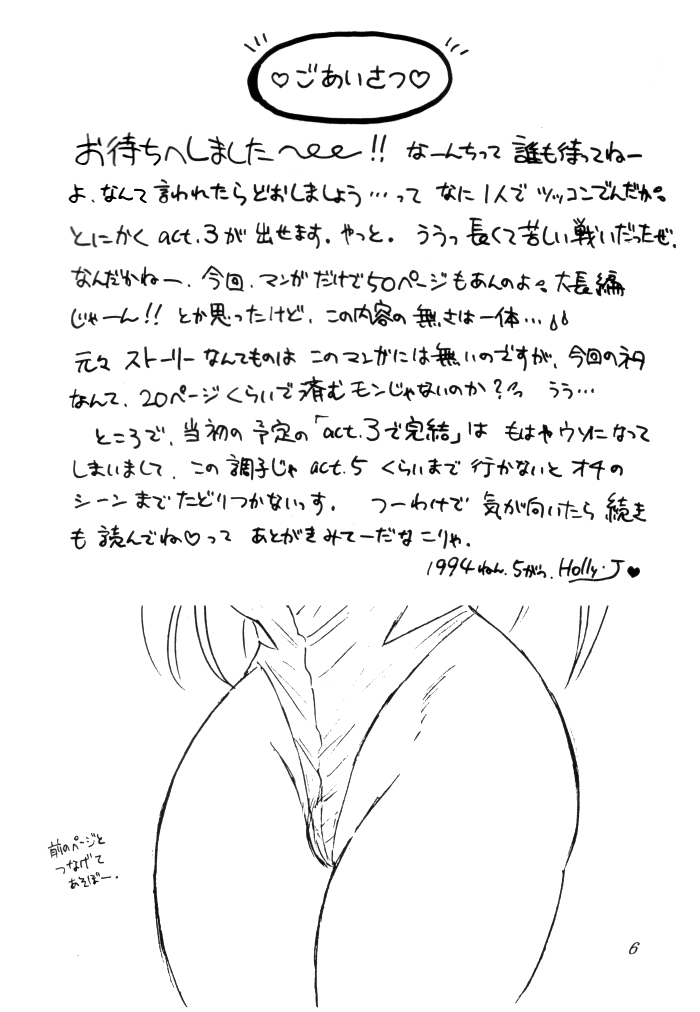 ♡ごあいさつ♡
お待ちへしました〜!! なーんちって 誰も待ってねー
よ、なんて言われたらどおしましょう…って なに1人で ツッコンでんだか。
とにかく act.3が 出せます。やっと。 ううっ 長くて苦しい戦いだったぜ。
なんだかねー、今回、マンガだけで50ページもあんのよ。大長編
じゃーん!! とか思ったけど、この内容の 無さは一体…
元々 ストーリーなんてものは このマンガには無いのですが、今回のネタ
なんて、20ページくらいで済むモンじゃないのか?っ うう…
ところで、当初の予定の「act.3で完結」は もはやウソになって
しまいまして、この調子じゃ act.5 くらいまで行かないと オチの
シーンまでたどりつかないっす。 つーわけで 気が向いたら 続き
も 読んでね♡って あとがきみてーだなこりゃ。
1994ねん.5がつ. Holly・J♥
前のページと
つなげて
あそぼー.
6